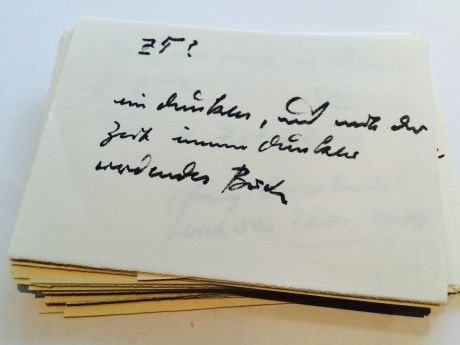 ZT?
ein dunkles, und mit der
Zeit immer dunkler
werdendes Buch